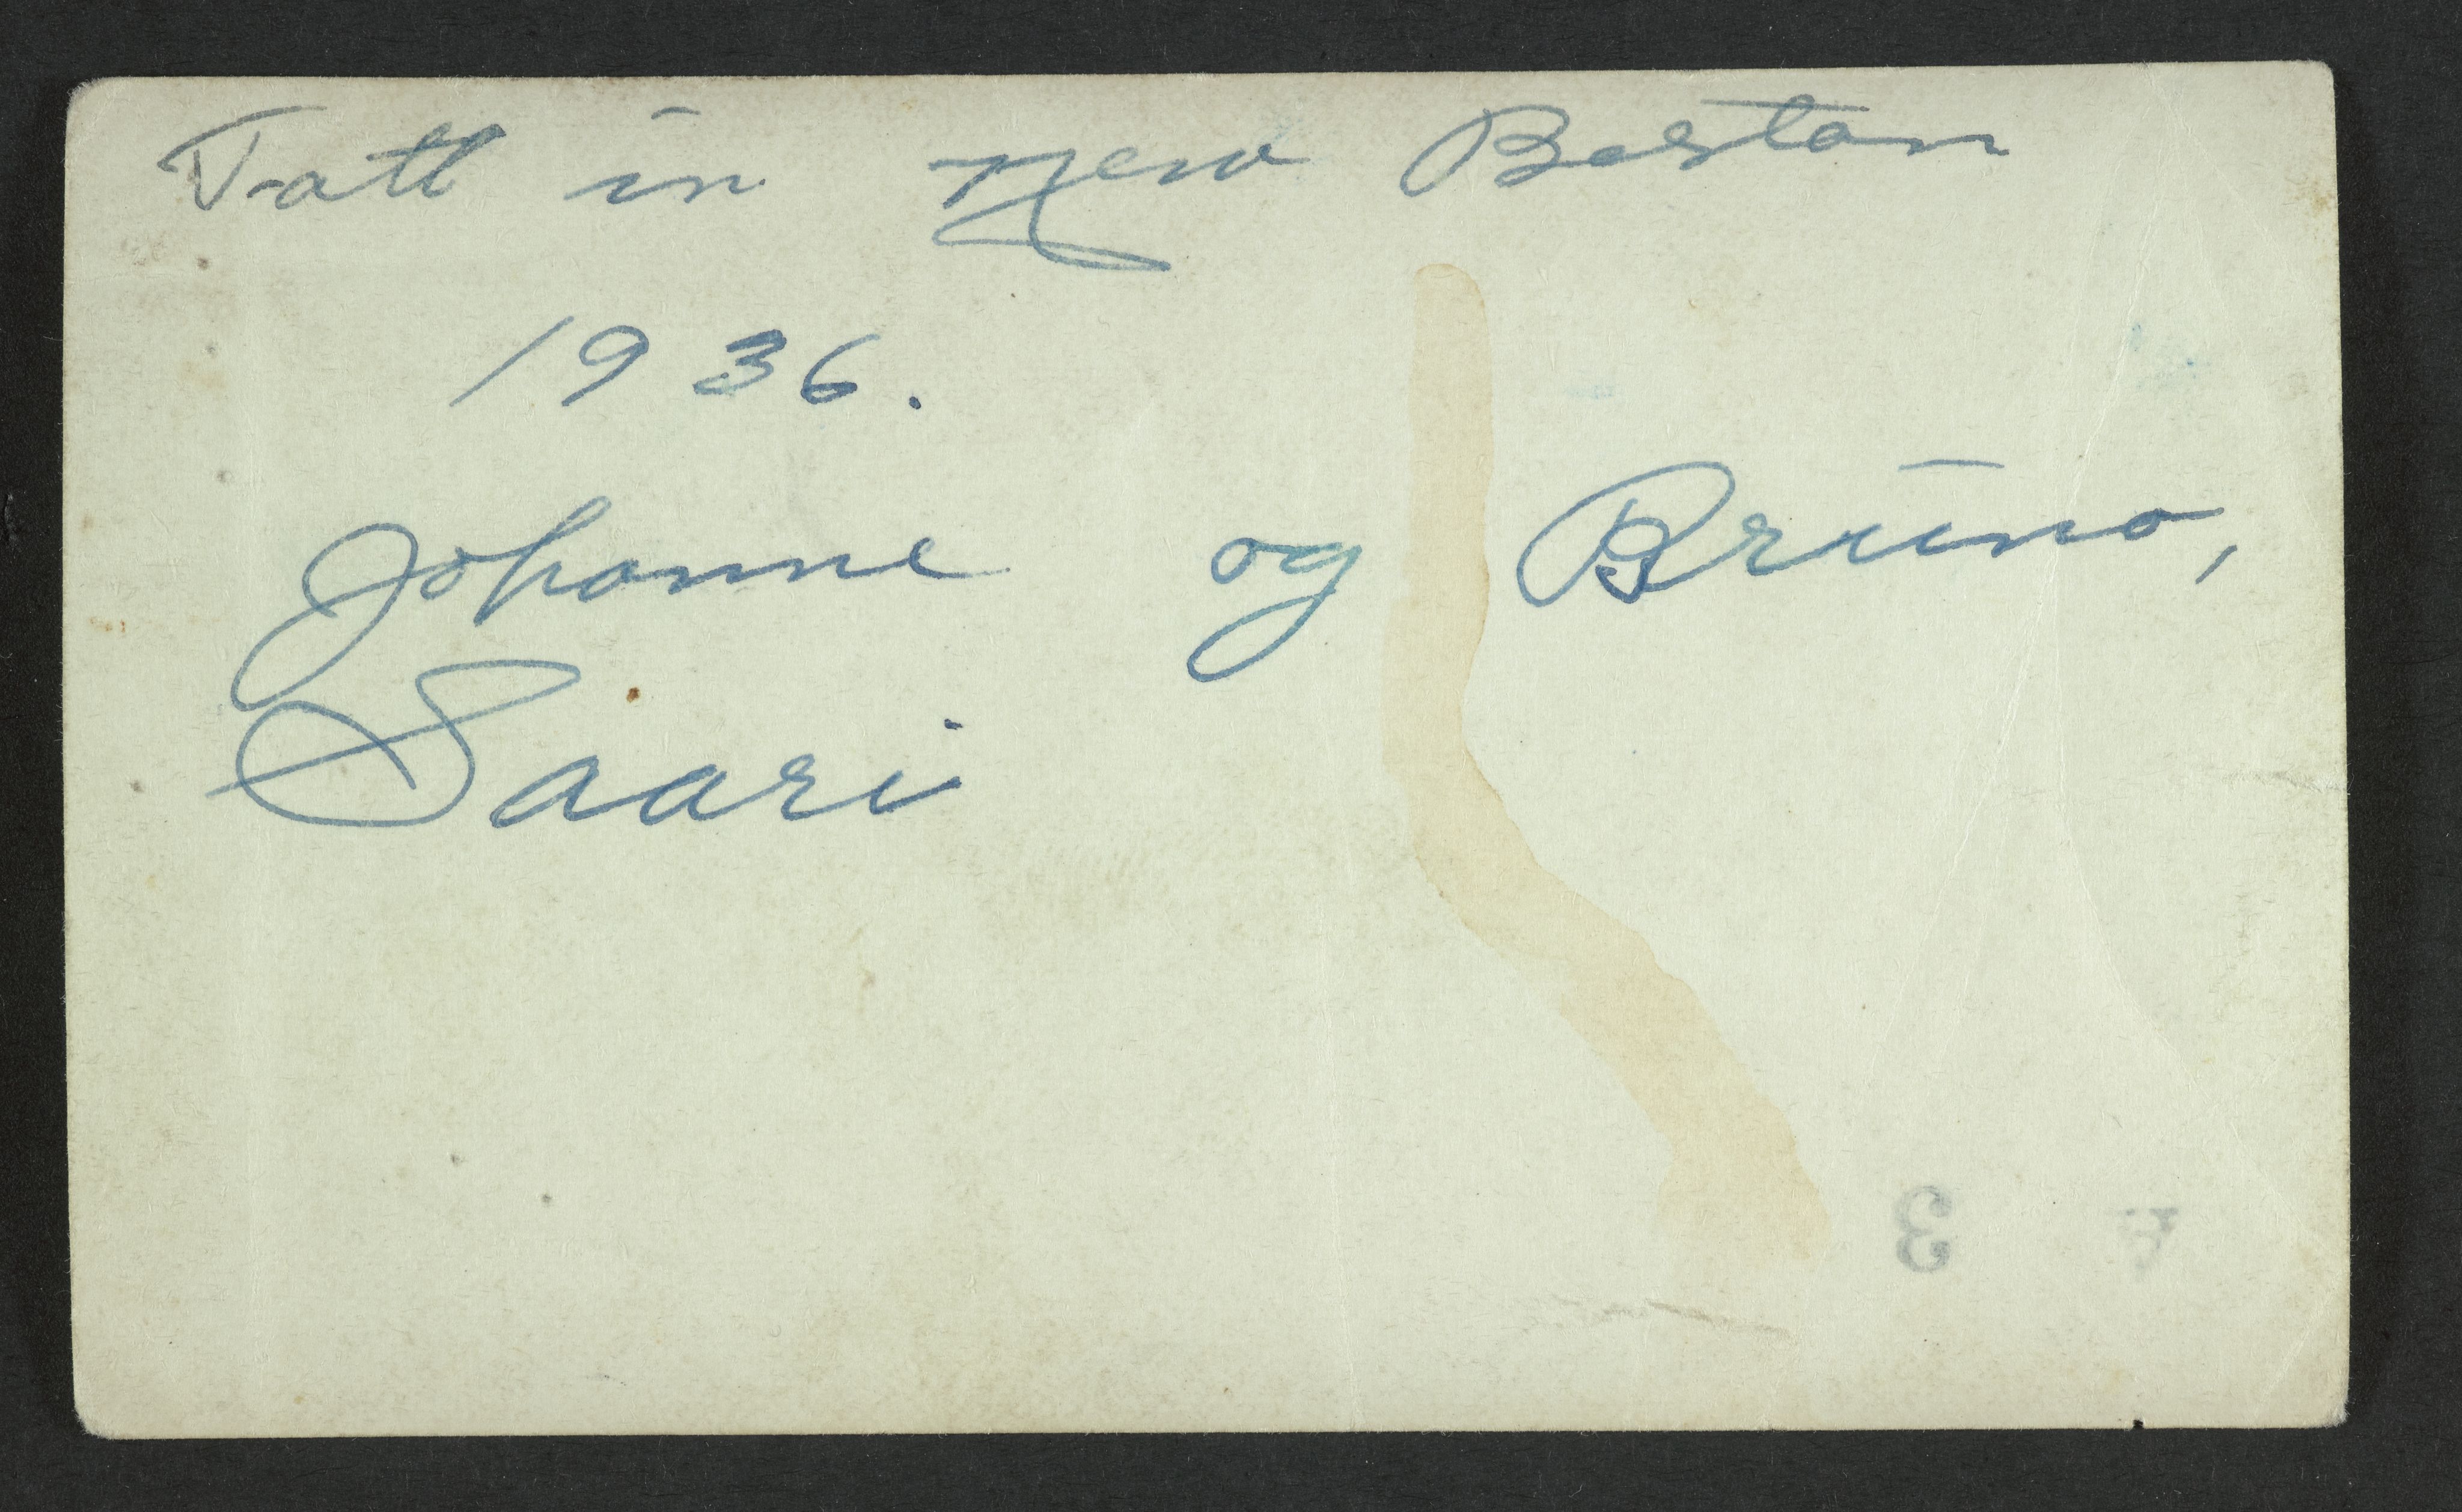 Tatt in New Boston
1936.
Johanne og Bruno,
Saari
3